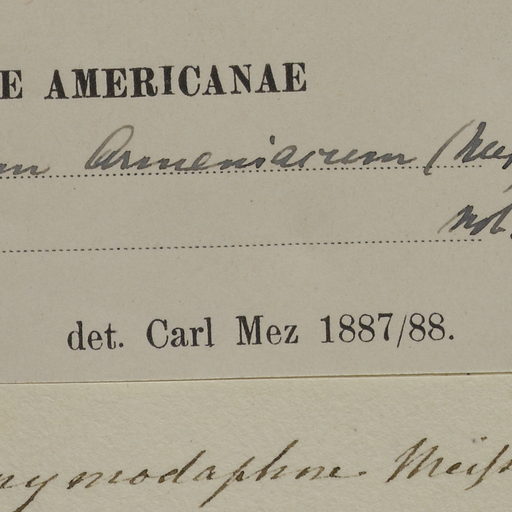 E AMERICANAE
um Armeniacum (Nees
Not.
det. Carl Mez 1887/88.
nymodaphne. Meiſs